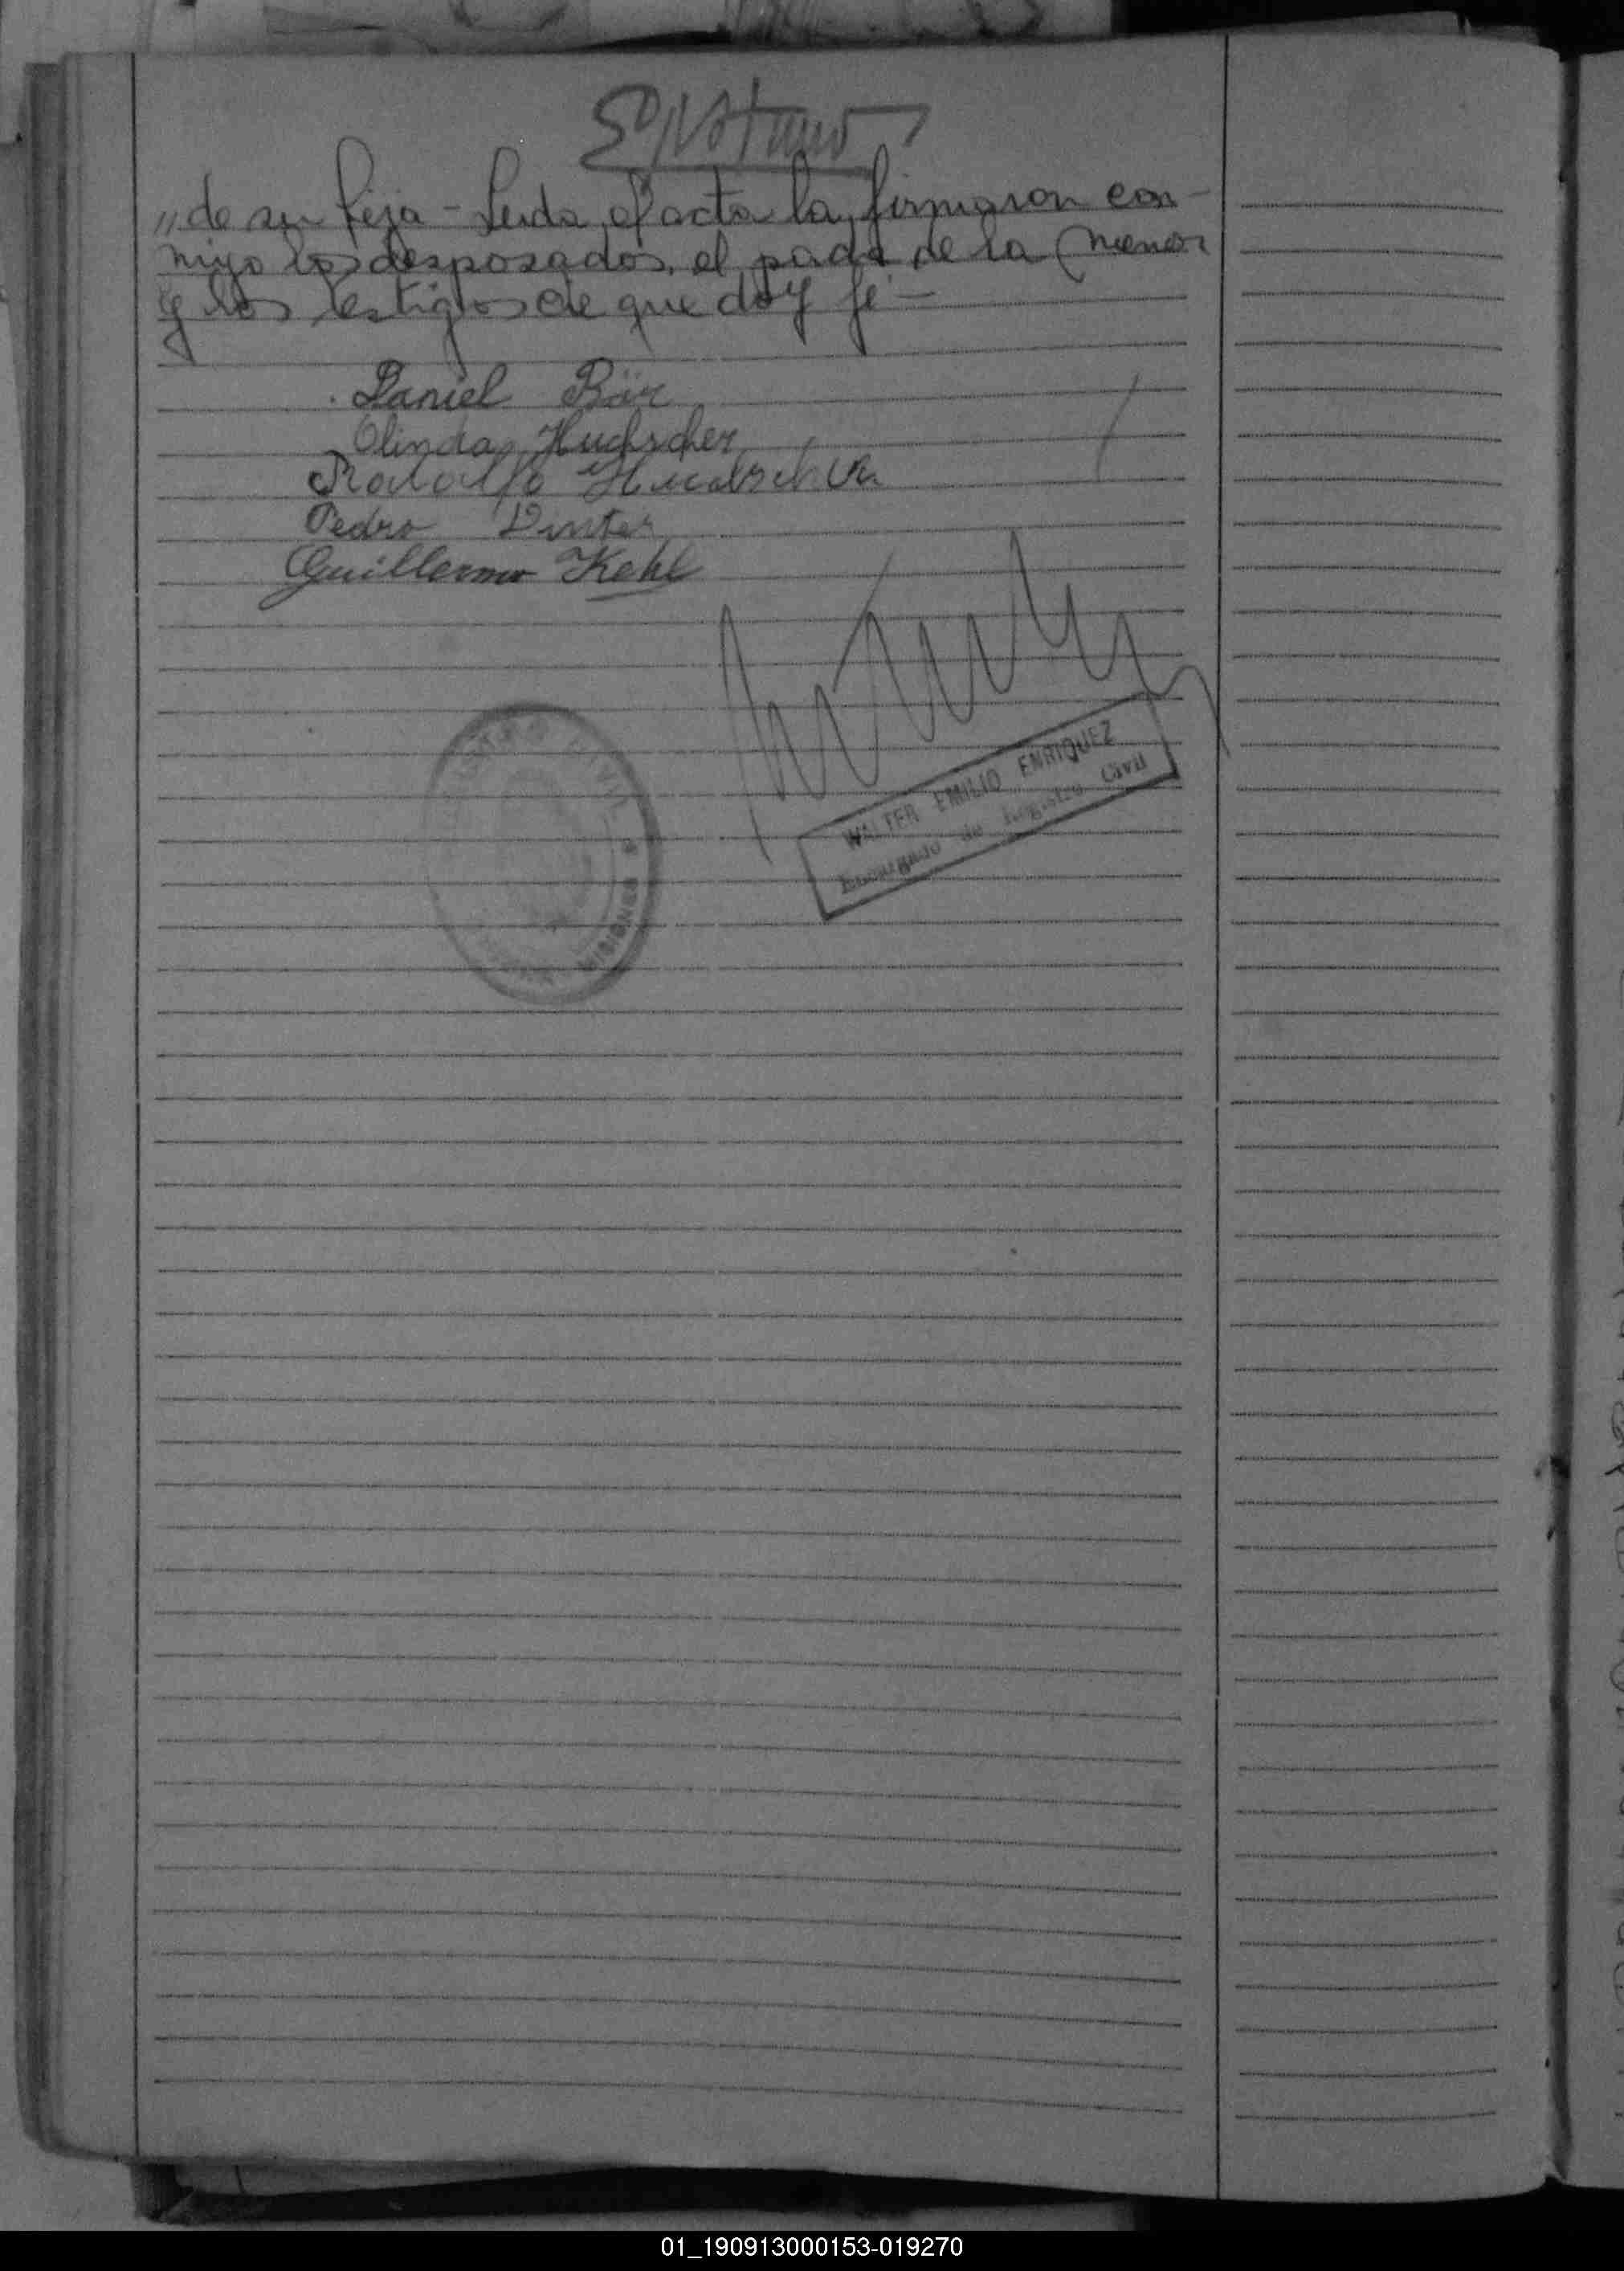 „de su hija - Leida el acta la firmaron con-
migo los desposados, el padre de la menor
y los testigos de que doy fé -
Daniel Bär
Olinda Huchscher
Rodolfo
Pedro Vinter
Guillermo Kehl
REGISTRO CIVIL
MISIONES
WALTER EMILIO ENRIQUEZ
Encargado de Registro Civil
01_190913000153-019270